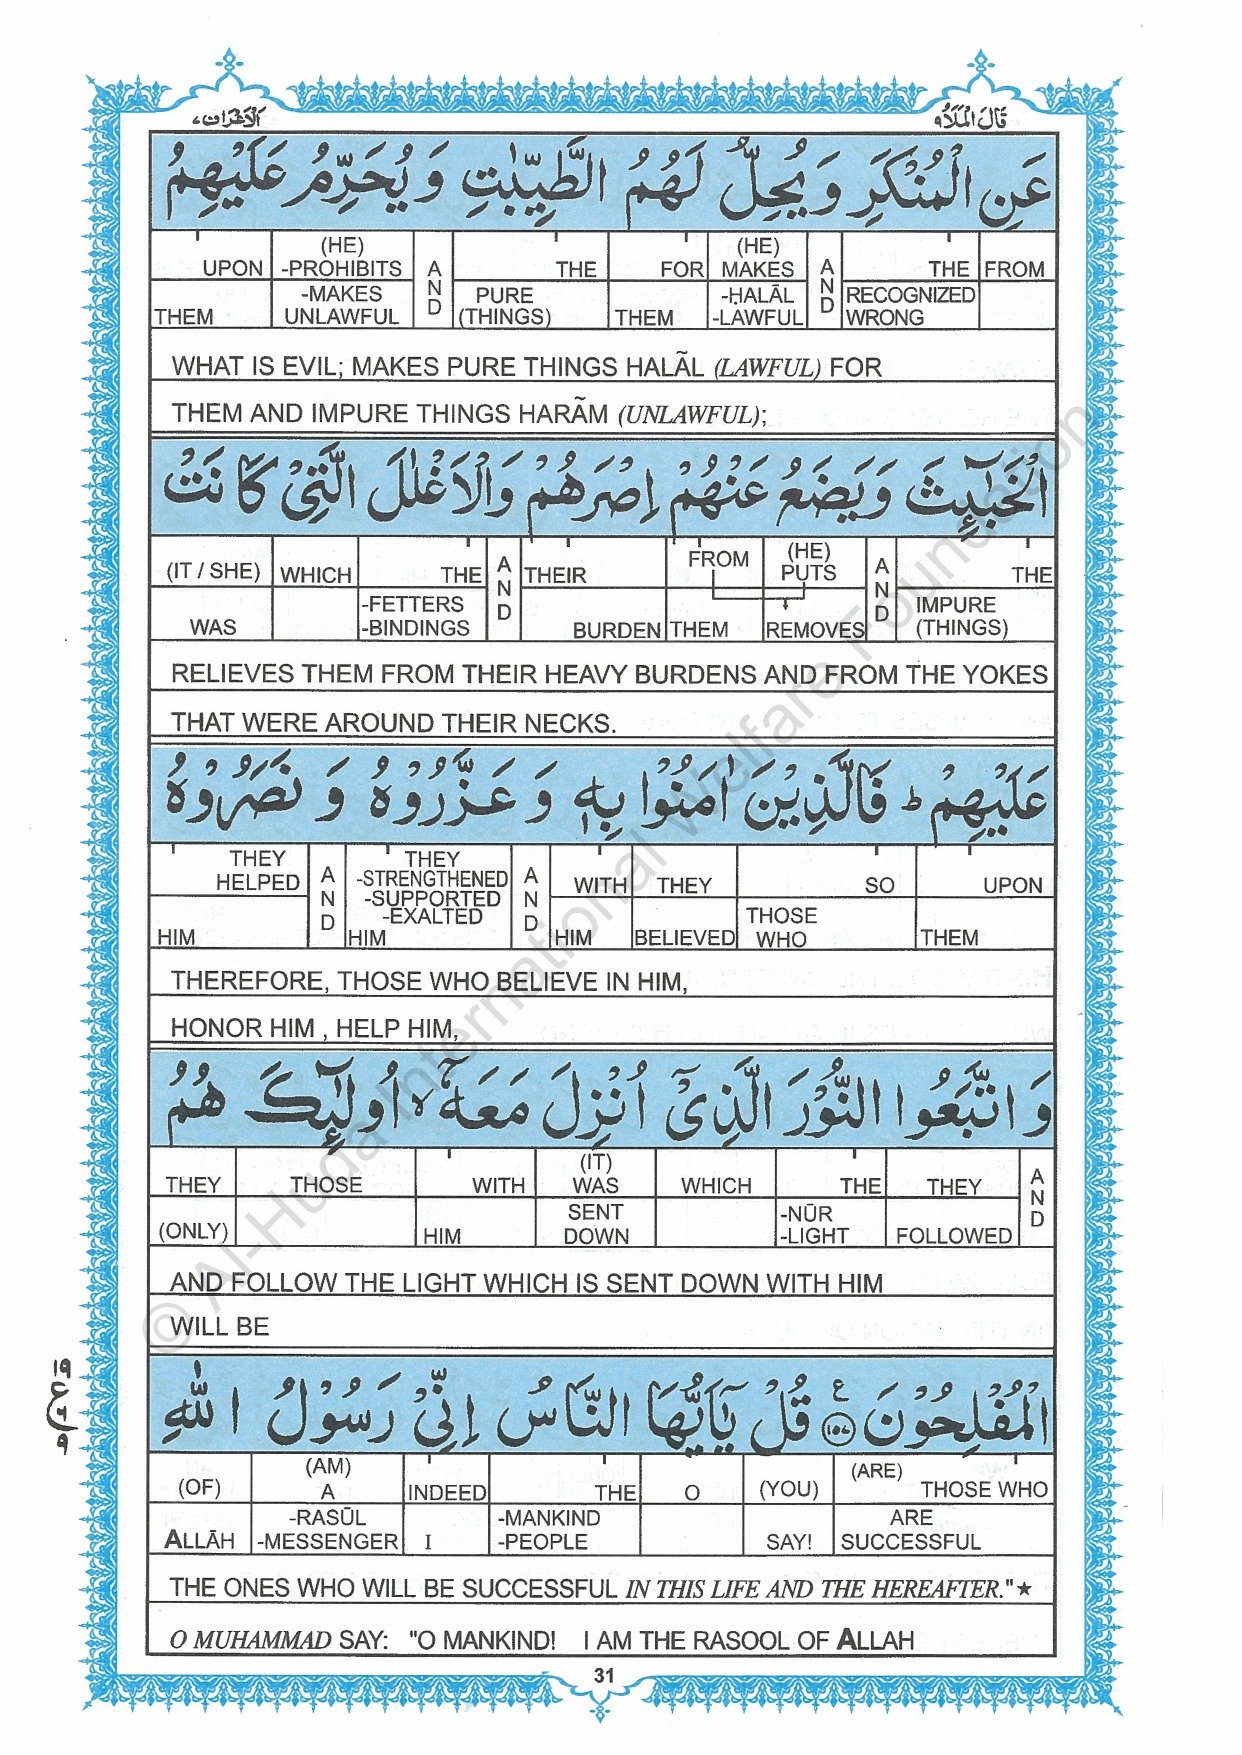 الاعراف ٧
قال الملا ٩
عَنِ الْمُنْكَرِ وَيُحِلُّ لَهُمُ الطَّيِّبٰتِ وَيُحَرِّمُ عَلَيْهِمُ
UPON THEM | (HE) -PROHIBITS -MAKES UNLAWFUL | AND | THE PURE (THINGS) | FOR THEM | (HE) MAKES -ḤALĀL -LAWFUL | AND | THE RECOGNIZED WRONG | FROM
WHAT IS EVIL; MAKES PURE THINGS HALÃL (LAWFUL) FOR
THEM AND IMPURE THINGS HARÃM (UNLAWFUL);
الْخَبٰٓئِثَ وَيَضَعُ عَنْهُمْ اِصْرَهُمْ وَالْاَغْلٰلَ الَّتِيْ كَانَتْ
(IT / SHE) WAS | WHICH | THE -FETTERS -BINDINGS | AND | THEIR BURDEN | FROM THEM | (HE) PUTS REMOVES | AND | THE IMPURE (THINGS)
RELIEVES THEM FROM THEIR HEAVY BURDENS AND FROM THE YOKES
THAT WERE AROUND THEIR NECKS.
عَلَيْهِمْ ؕ فَالَّذِيْنَ اٰمَنُوْا بِهٖ وَعَزَّرُوْهُ وَنَصَرُوْهُ
THEY HELPED HIM | AND | THEY -STRENGTHENED -SUPPORTED -EXALTED HIM | AND | WITH HIM | THEY BELIEVED | SO THOSE WHO | UPON THEM
THEREFORE, THOSE WHO BELIEVE IN HIM,
HONOR HIM , HELP HIM,
وَاتَّبَعُوا النُّوْرَ الَّذِيْٓ اُنْزِلَ مَعَهٗٓ ۙ اُولٰٓئِكَ هُمُ
THEY (ONLY) | THOSE | WITH HIM | (IT) WAS SENT DOWN | WHICH | THE -NŪR -LIGHT | THEY FOLLOWED | AND
AND FOLLOW THE LIGHT WHICH IS SENT DOWN WITH HIM
WILL BE
الْمُفْلِحُوْنَ ﴿۱۵۷﴾ ع قُلْ يٰٓاَيُّهَا النَّاسُ اِنِّيْ رَسُوْلُ اللّٰهِ
(OF) ALLĀH | (AM) A -RASŪL -MESSENGER | INDEED I | THE -MANKIND -PEOPLE | O | (YOU) SAY! | (ARE) THOSE WHO ARE SUCCESSFUL
THE ONES WHO WILL BE SUCCESSFUL IN THIS LIFE AND THE HEREAFTER."★
O MUHAMMAD SAY: "O MANKIND! I AM THE RASOOL OF ALLAH
31
© Al-Huda International Welfare Foundation